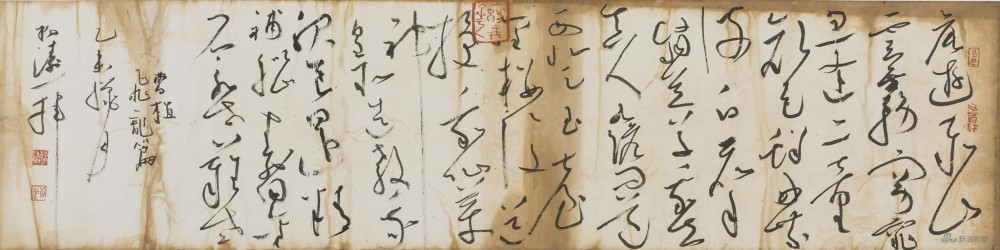 晨遊泰山
雲霧窈窕
忽逢二童
顏色鮮好乘
彼白鹿手
翳芝草我知
真人長跪問道
西登玉堂
金樓複道
授我仙藥
神皇所造教我
服食還精
補腦壽同金
石永世難老
曹植
飛龍篇
乙未
月
新浪收藏